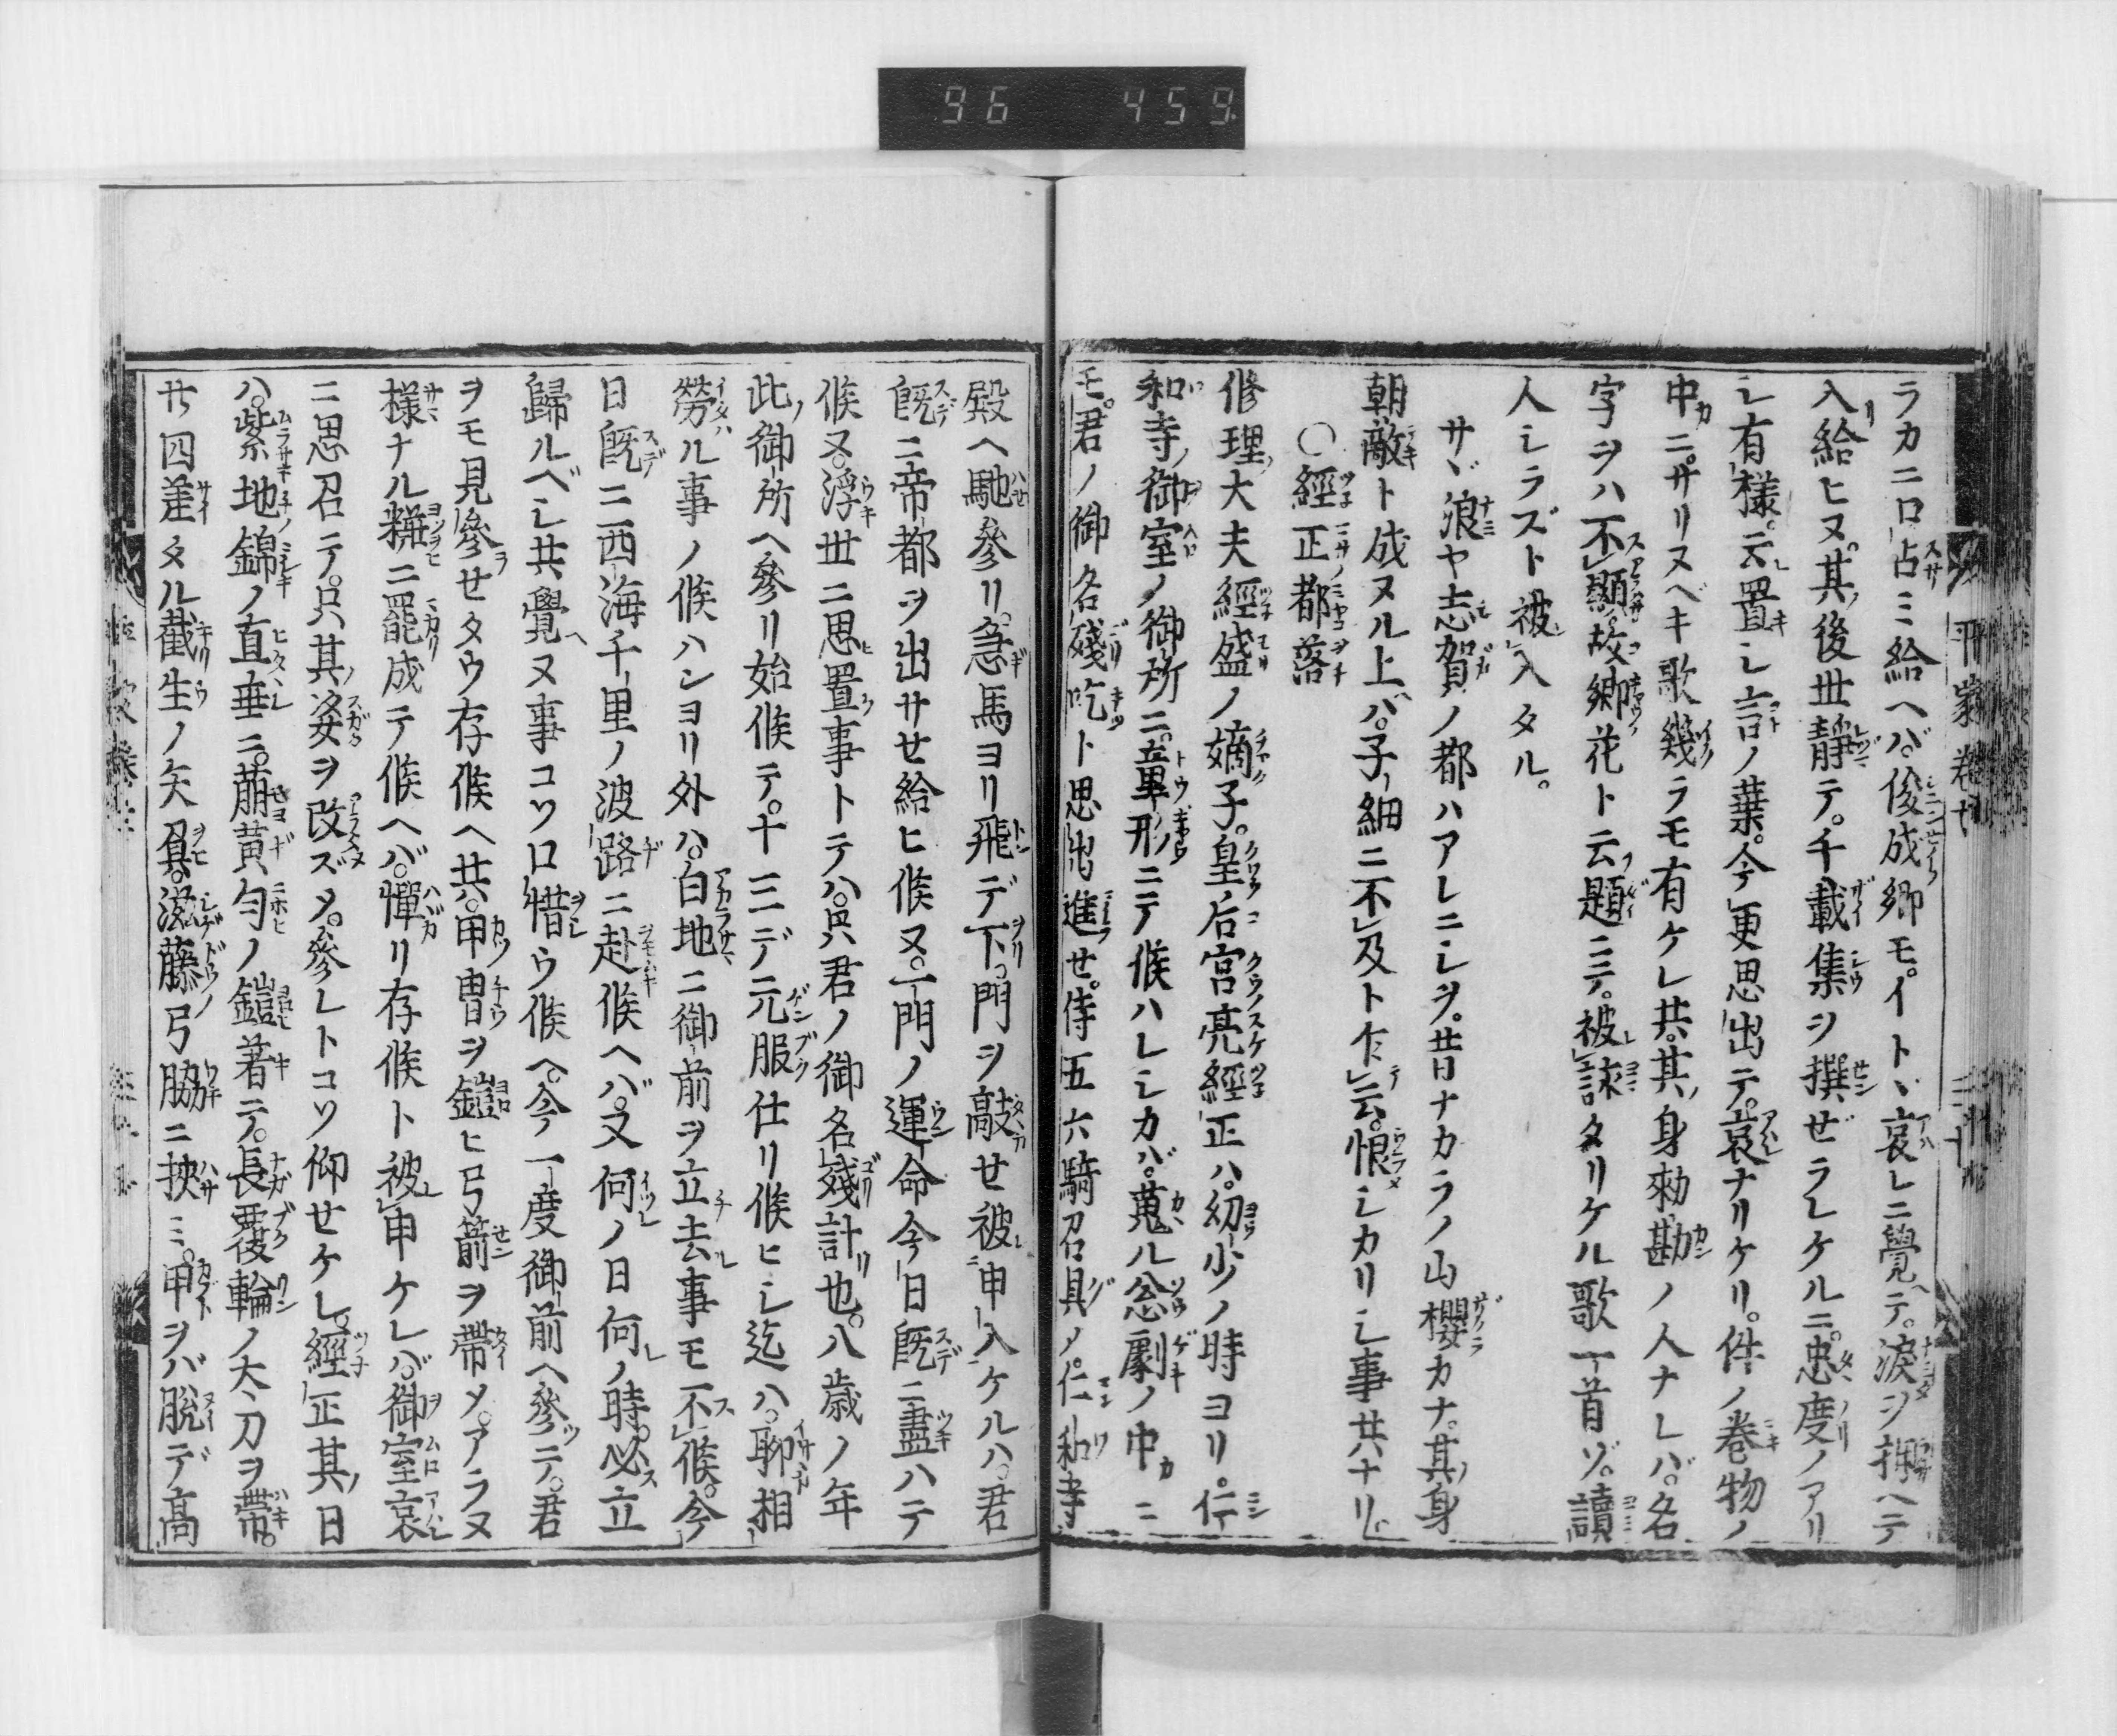 96 459
ラカニ口占ミ給ヘバ。俊成卿モ。イトヽ哀レニ覺ヘテ。淚ヲ押ヘテ
入給ヒヌ。其後世靜テ。千載集ヲ撰ゼラレケルニ。忠度ノアリ
シ有樣。云置シ言ノ葉。今更思出テ。哀ナリケリ。件ノ巻物ノ
中ニ。サリヌベキ歌幾ラモ有ケレ共。其身勅勘ノ人ナレバ。名
字ヲハ不顯。故鄕花ト云題ニテ。被詠タリケル歌一首ゾ。讀
人シラズト被入タル。
サヾ浪ヤ志賀ノ都ハアレニシヲ。昔ナカラノ山櫻カナ。其身
朝敵ト成ヌル上バ。子細ニ不及ト乍云。恨シカリシ事共ナリ
○經正都落
修理大夫經盛ノ嫡子。皇后宮亮經正ハ。幼少ノ時ヨリ。仁
和寺ノ御室ノ御所ニ。童形ニテ候ハレシカバ。蒐ル怱劇ノ中ニ
モ。君ノ御名殘吃ト思出進セ。侍五六騎召具ノ。仁和寺
殿ヘ馳參リ。急馬ヨリ飛デ下。門ヲ敲セ被申入ケルハ。君
既ニ帝都ヲ出サセ給ヒ候ヌ。一門ノ運命今日既ニ盡ハテ
候ヌ。浮世ニ思置事トテハ。只君ノ御名殘計也。八歳ノ年
此御所ヘ參リ始候テ。十三デ元服仕リ候ヒシ迄ハ。聊相
勞ル事ノ候ハンヨリ外ハ。白地ニ御前ヲ立去事モ不候。今
日既ニ西海千里ノ波路ニ赴候ヘバ。又何ノ日何ノ時。必立
歸ルベシ共覺ヘヌ事コソ口惜ウ候ヘ。今一度御前ヘ參テ。君
ヲモ見參セタウ存候ヘ共。甲冑ヲ鎧ヒ弓箭ヲ帶メ。アラヌ
樣ナル粧ニ罷成テ候ヘバ。憚リ存候ト被申ケレバ。御室哀
ニ思召テ。只其姿ヲ改ズメ。參レトコソ仰セケレ。經正其日
ハ。紫地錦ノ直垂ニ。萠黃匂ノ鎧著テ。長覆輪ノ大刀ヲ帶。
廿四差タル截生ノ矢負。滋藤弓脇ニ挾ミ。甲ヲバ脫デ高